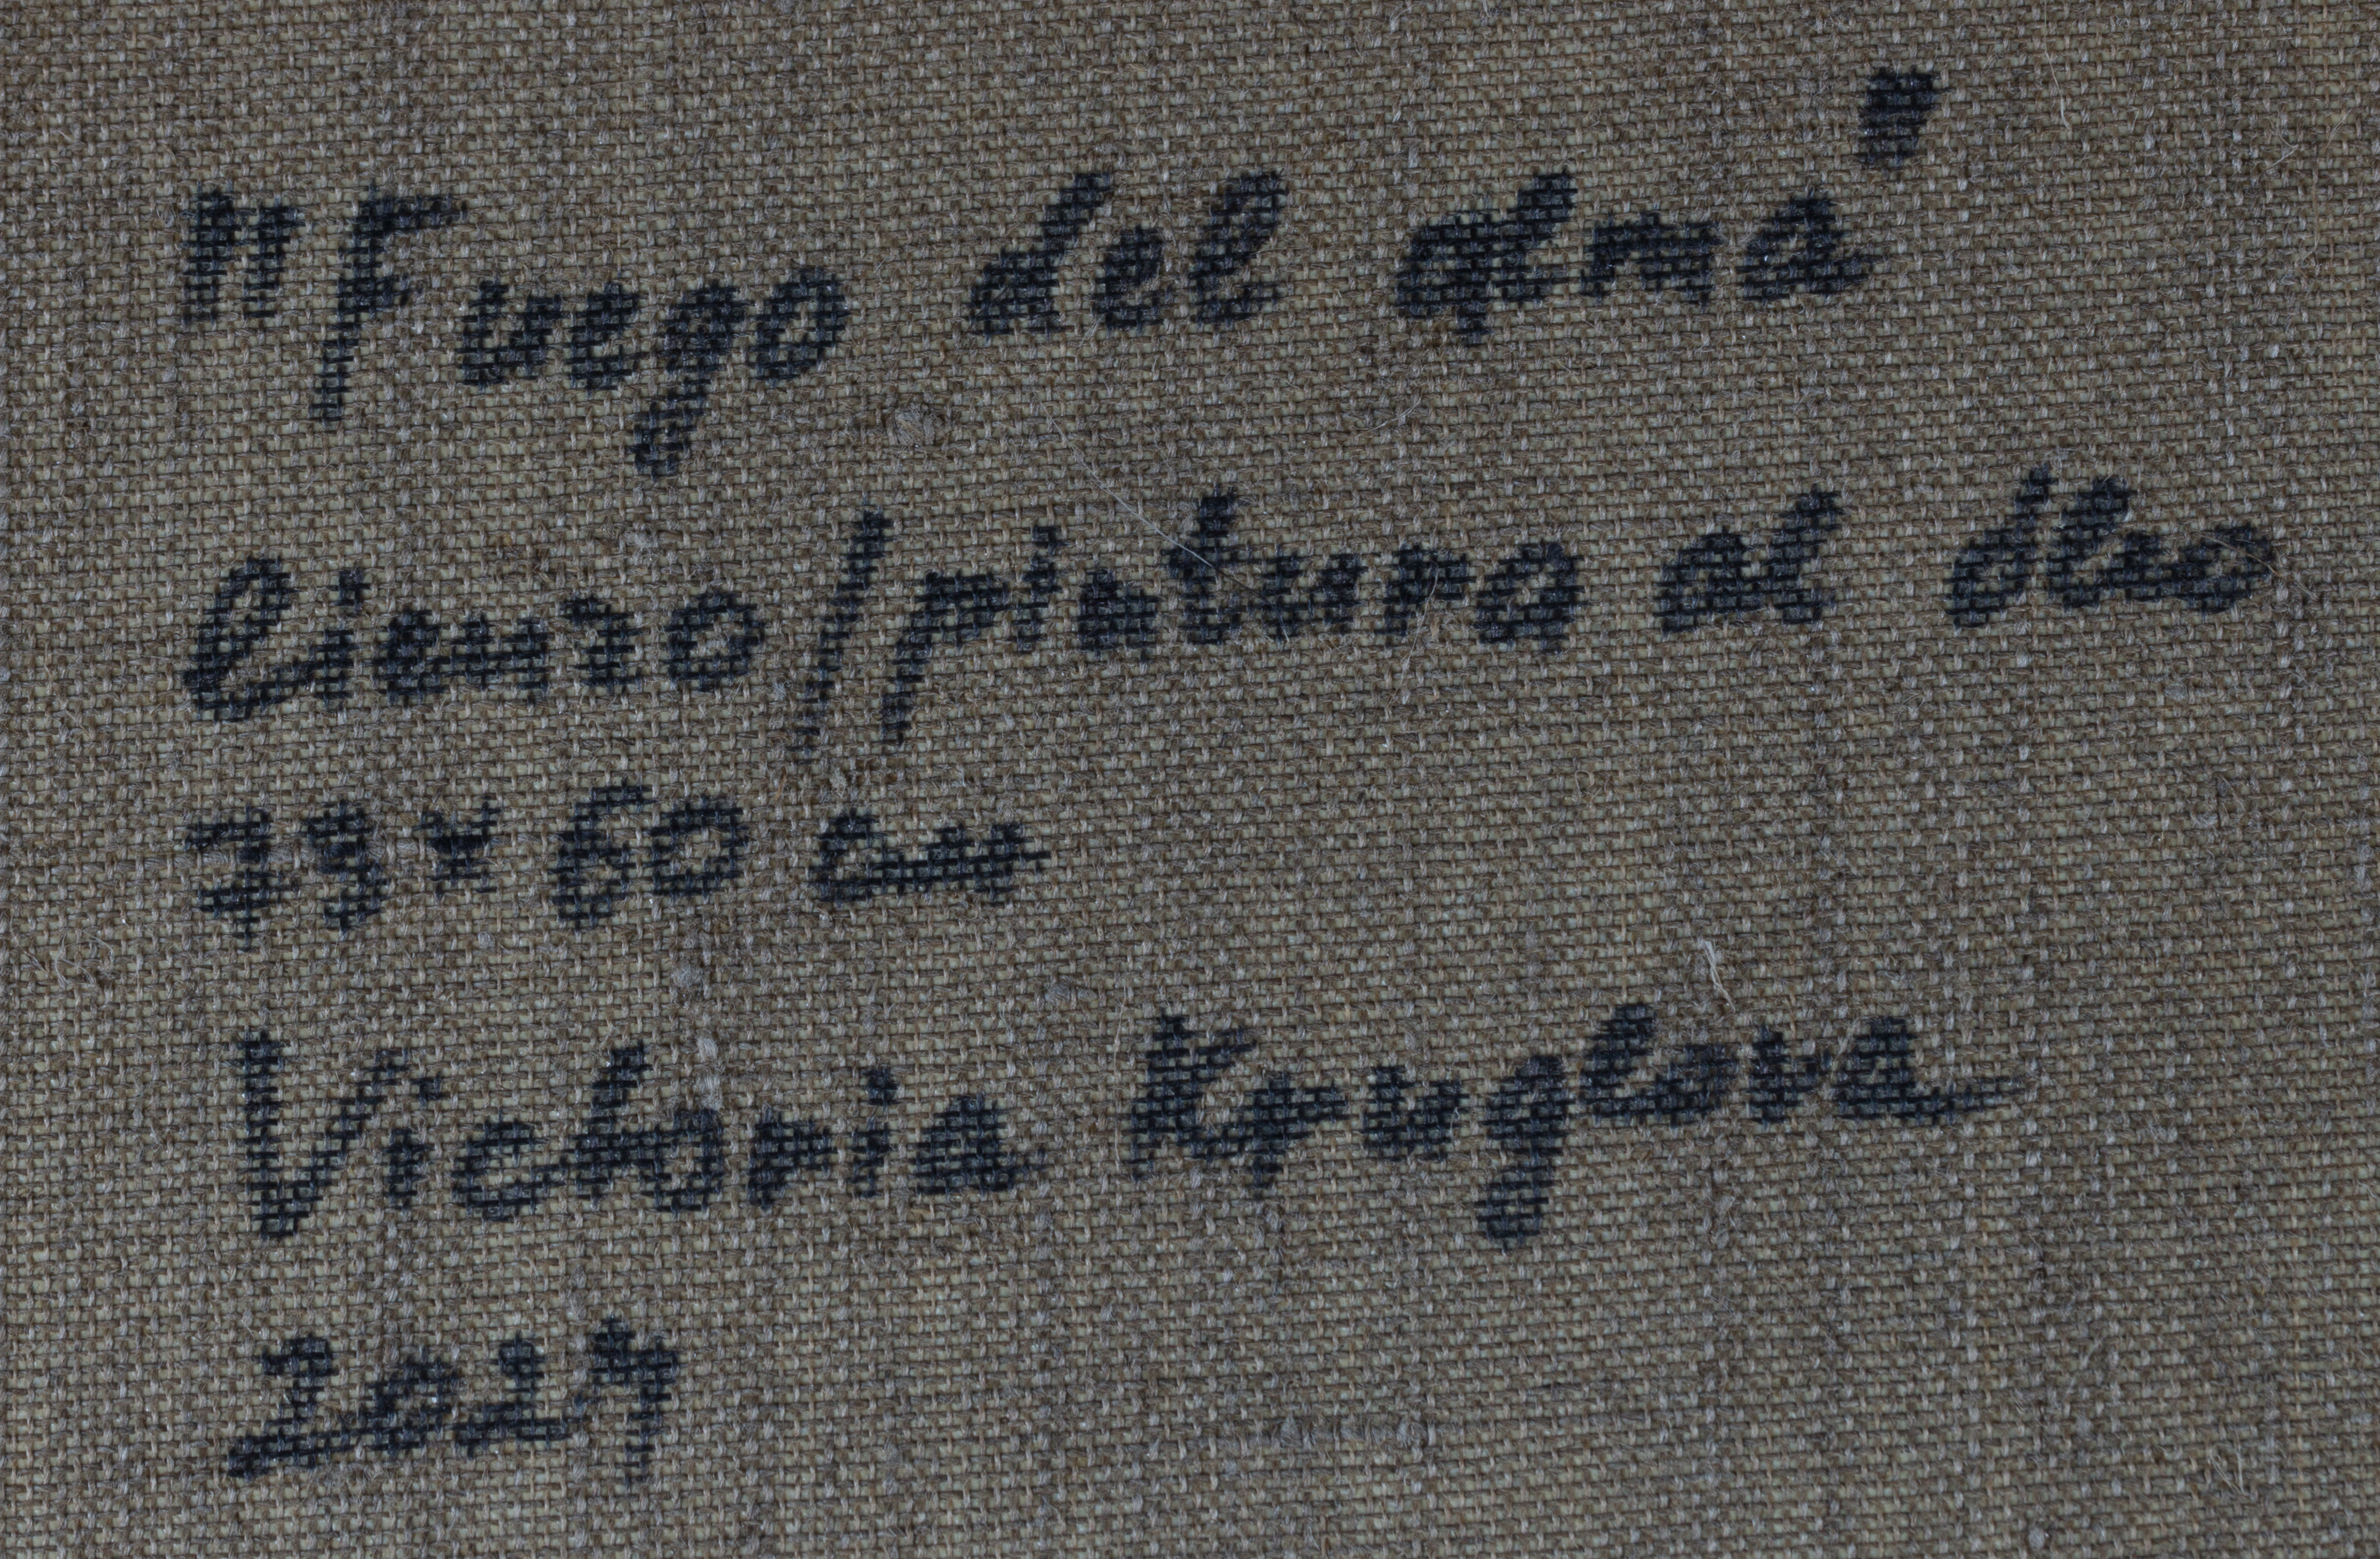 "Fuego del alma"
lienzo/pintura al óleo
73x60 cm
Victoria Kruglova
2024